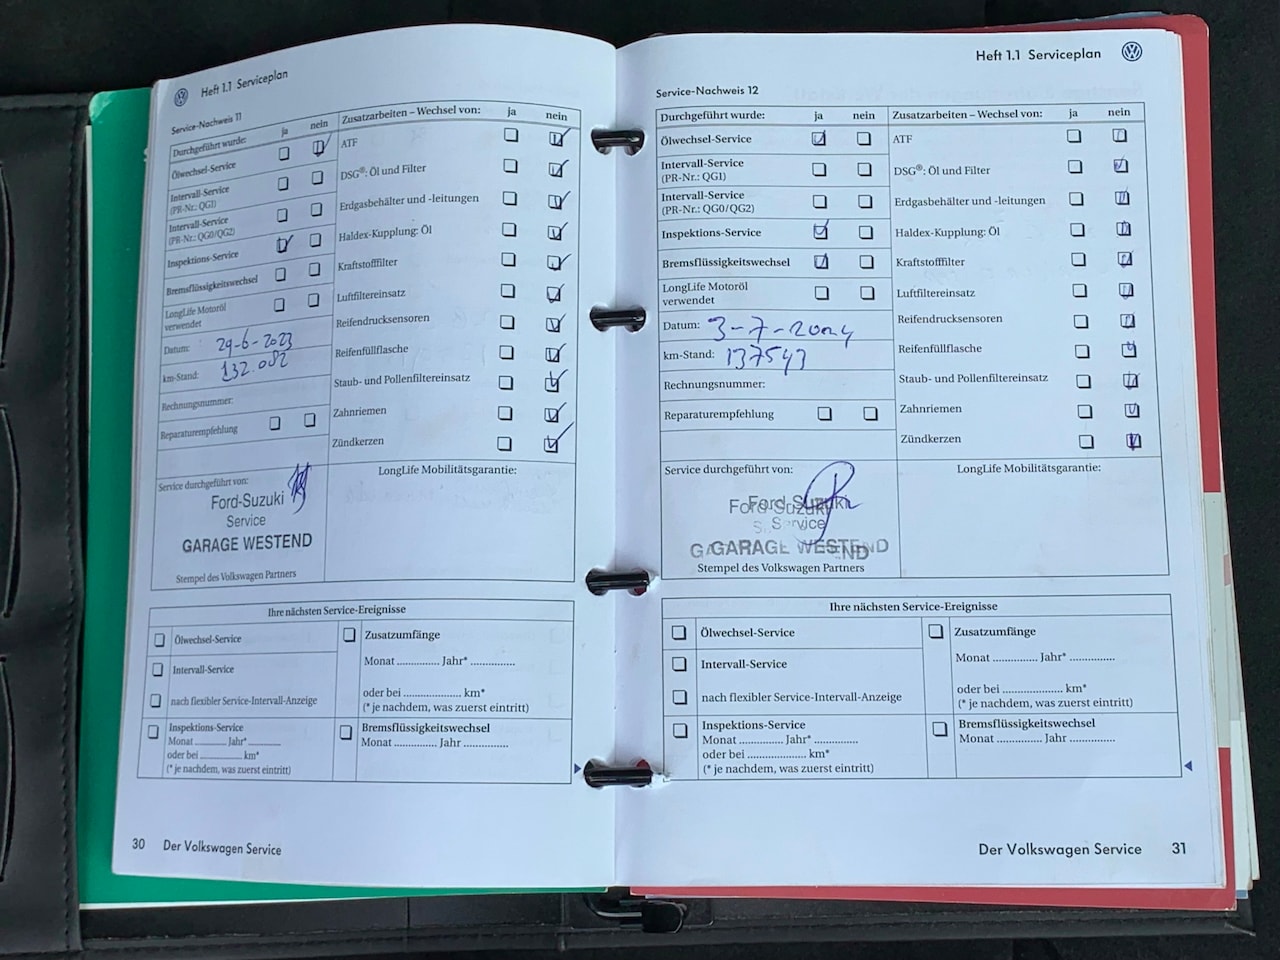 Heft 1.1 Serviceplan
Service-Nachweis 11
Durchgeführt wurde: ja nein
Ölwechsel-Service
Intervall-Service
(PR-Nr.: QG1)
Intervall-Service
(PR-Nr.: QG0/QG2)
Inspektions-Service
Bremsflüssigkeitswechsel
LongLife Motoröl
verwendet
Datum: 29-6-2023
km-Stand: 132.082
Rechnungsnummer:
Reparaturempfehlung
Zusatzarbeiten – Wechsel von: ja nein
ATF
DSG®: Öl und Filter
Erdgasbehälter und -leitungen
Haldex-Kupplung: Öl
Kraftstofffilter
Luftfiltereinsatz
Reifendrucksensoren
Reifenfüllflasche
Staub- und Pollenfiltereinsatz
Zahnriemen
Zündkerzen
Service durchgeführt von:
Ford-Suzuki
Service
GARAGE WESTEND
Stempel des Volkswagen Partners
LongLife Mobilitätsgarantie:
Ihre nächsten Service-Ereignisse
Ölwechsel-Service
Intervall-Service
nach flexibler Service-Intervall-Anzeige
Zusatzumfänge
Monat ............... Jahr* ................
oder bei ..................... km*
(* je nachdem, was zuerst eintritt)
Inspektions-Service
Monat ........... Jahr* ...........
oder bei ................. km*
(* je nachdem, was zuerst eintritt)
Bremsflüssigkeitswechsel
Monat ............... Jahr ................
30 Der Volkswagen Service
Heft 1.1 Serviceplan
Service-Nachweis 12
Durchgeführt wurde: ja nein
Ölwechsel-Service
Intervall-Service
(PR-Nr.: QG1)
Intervall-Service
(PR-Nr.: QG0/QG2)
Inspektions-Service
Bremsflüssigkeitswechsel
LongLife Motoröl
verwendet
Datum: 3-7-2024
km-Stand: 137543
Rechnungsnummer:
Reparaturempfehlung
Zusatzarbeiten – Wechsel von: ja nein
ATF
DSG®: Öl und Filter
Erdgasbehälter und -leitungen
Haldex-Kupplung: Öl
Kraftstofffilter
Luftfiltereinsatz
Reifendrucksensoren
Reifenfüllflasche
Staub- und Pollenfiltereinsatz
Zahnriemen
Zündkerzen
Service durchgeführt von:
Ford-Suzuki
Service
GARAGE WESTEND
Stempel des Volkswagen Partners
LongLife Mobilitätsgarantie:
Ihre nächsten Service-Ereignisse
Ölwechsel-Service
Intervall-Service
nach flexibler Service-Intervall-Anzeige
Zusatzumfänge
Monat ............... Jahr* ................
oder bei ..................... km*
(* je nachdem, was zuerst eintritt)
Inspektions-Service
Monat ............... Jahr* ................
oder bei ..................... km*
(* je nachdem, was zuerst eintritt)
Bremsflüssigkeitswechsel
Monat ............... Jahr ................
Der Volkswagen Service 31